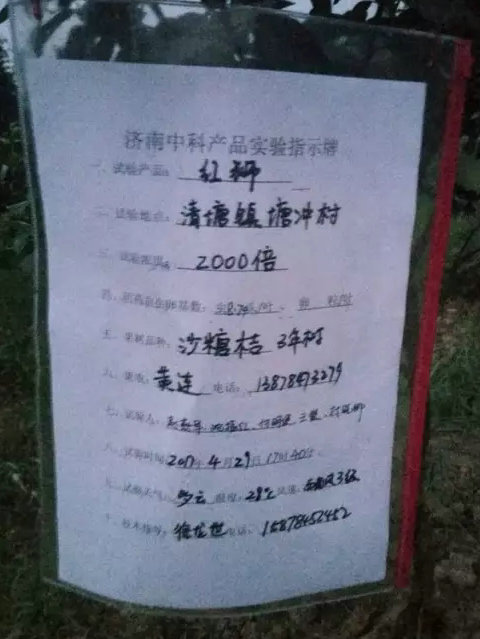 济南中科产品实验指示牌
一、试验产品：红狮
二、试验地点：清塘镇塘冲村
三、试验浓度：2000倍
四、
五、果树品种：沙糖桔 3年树
六、果农：黄连 电话：13878473279
七、试验人：
八、试验时间：2017年4月29日17时40分
九、试验天气：多云 温度：28℃ 风速：3级
十、技术指导： 电话：15878452452